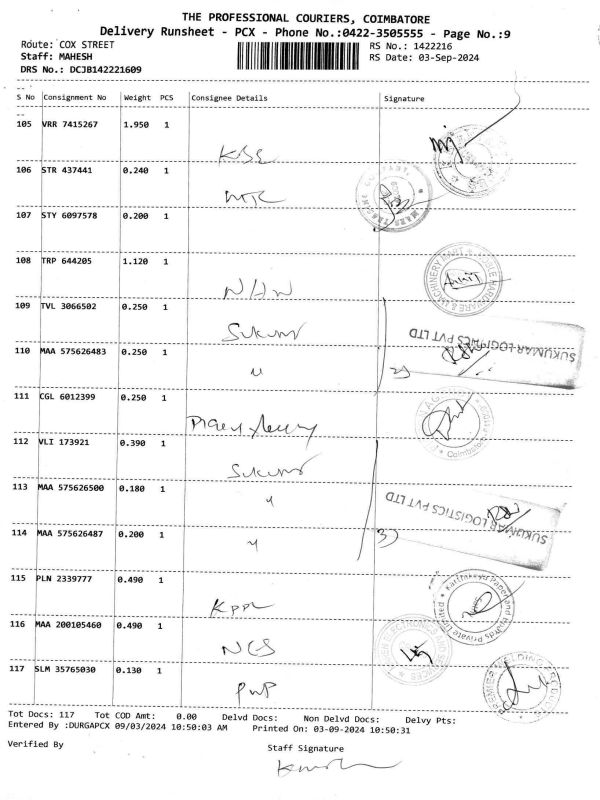 THE PROFESSIONAL COURIERS, COIMBATORE
Delivery Runsheet - PCX - Phone No.:0422-3505555 - Page No.:9
Route: COX STREET RS No.: 1422216
Staff: MAHESH RS Date: 03-Sep-2024
DRS No.: DCJB142221609
S No Consignment No Weight PCS Consignee Details Signature
105 VRR 7415267 1.950 1
KBE
106 STR 437441 0.240 1
MTC
107 STY 6097578 0.200 1
108 TRP 644205 1.120 1
109 TVL 3066502 0.250 1
Sukumar
SUKUMAR LOGISTICS PVT LTD
110 MAA 575626483 0.250 1
2)
111 CGL 6012399 0.250 1
Coimbatore
112 VLI 173921 0.390 1
Sukumar
113 MAA 575626500 0.180 1
SUKUMAR LOGISTICS PVT LTD
114 MAA 575626487 0.200 1
3)
115 PLN 2339777 0.490 1
KPPL
116 MAA 200105460 0.490 1
NCS
117 SLM 35765030 0.130 1
PWP
Tot Docs: 117 Tot COD Amt: 0.00 Delvd Docs: Non Delvd Docs: Delvy Pts:
Entered By :DURGAPCX 09/03/2024 10:50:03 AM Printed On: 03-09-2024 10:50:31
Verified By Staff Signature